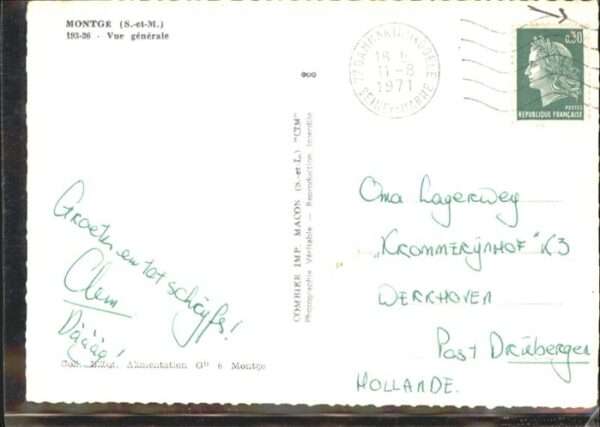 MONTGE (S.-et-M.)
193-26 - Vue générale
77 DAMMARTIN EN GOELE
18 H
11-8
1971
SEINE-ET-MARNE
0,30
POSTES
REPUBLIQUE FRANÇAISE
COMBIER IMP. MACON (S.-et-L.) "CIM"
Photographie Véritable - Reproduction Interdite
Groeten en tot
Clem
Dàààg!
Alimentation Gle à Montge
Oma Lagerwey
„KROMMERIJNHOF" K3
WERKHOVEN
Post Driebergen
HOLLANDE.